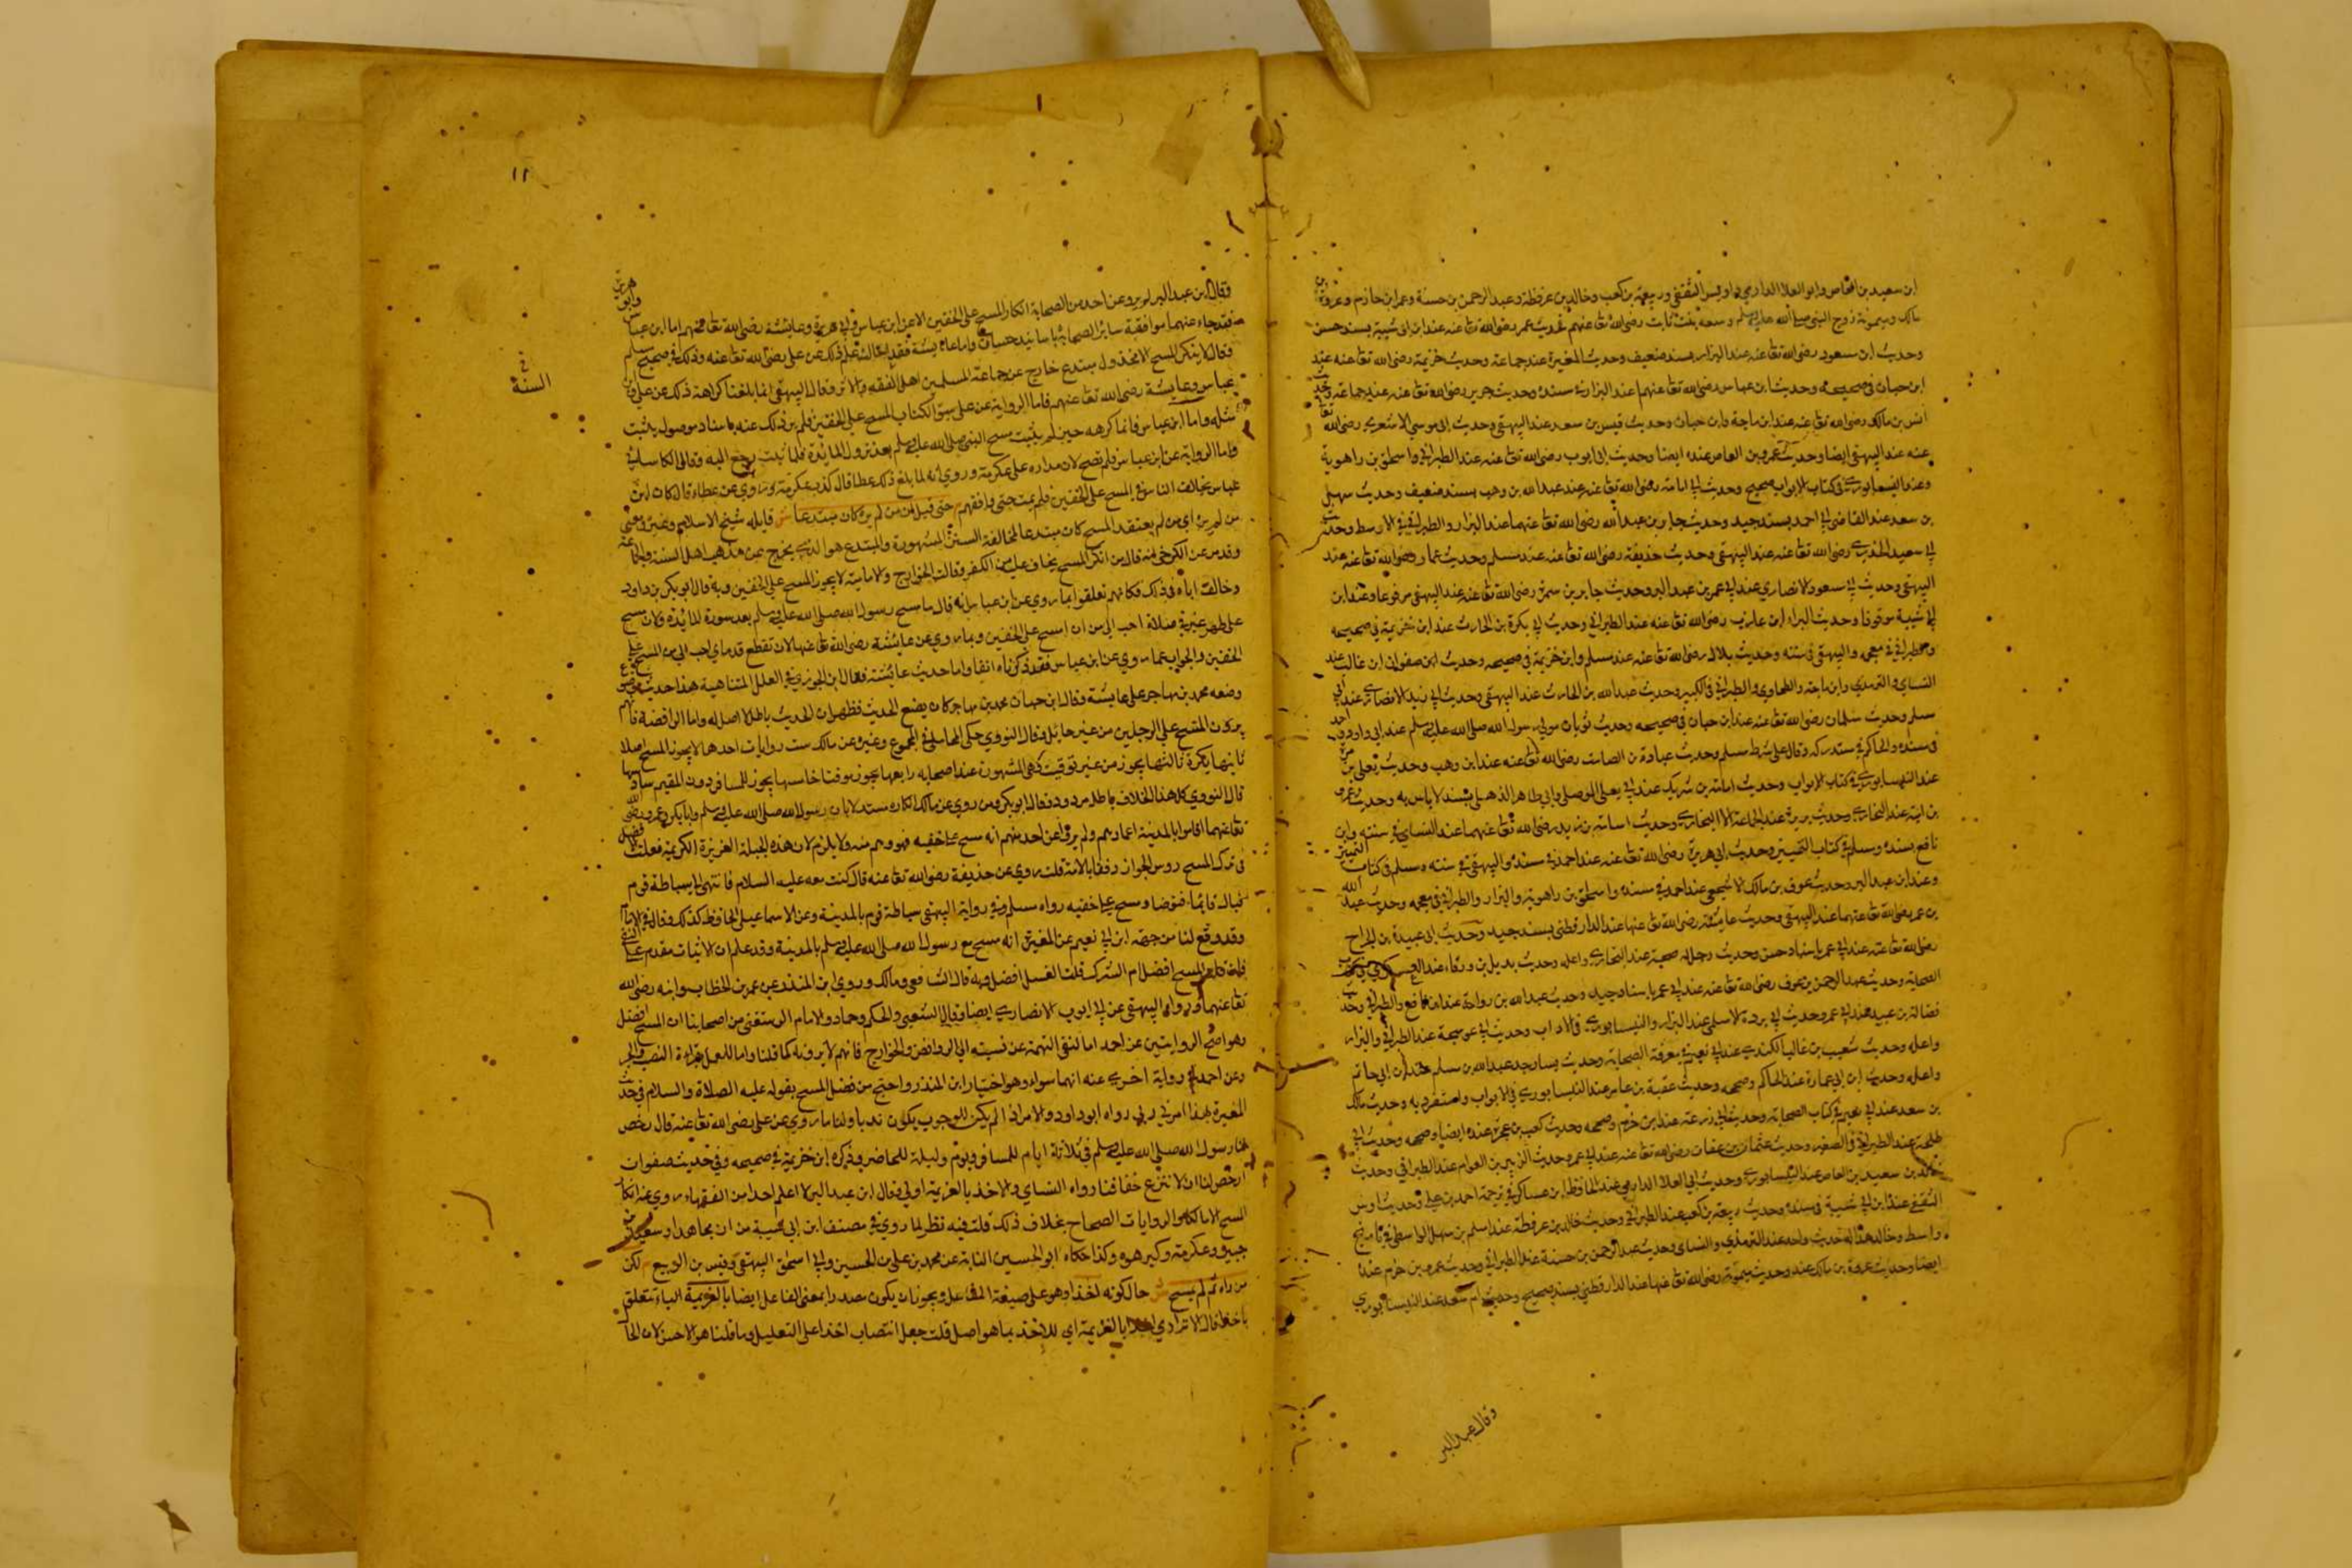 ابن سعيد بن العاص وابو العلا الداري واوس الثقفي وربيعة بن كعب وخالد بن عرفطة وعبد الرحمن بن حسنة وعمرو ابن حازم وعروة بن
مالك وميمونة زوج النبي صلى الله عليه وسلم رضي الله تعا عنهم فحديث عمر رضي الله تعا عنه عند ابن ابي شيبة بسند حسن
وحديث ابن مسعود رضي الله تعا عنه عند البزار بسند ضعيف وحديث المغيرة عند جماعة وحديث خزيمة رضي الله تعا عنه عند
ابن حبان في صحيحه وحديث ابن عباس رضي الله تعا عنهما عند البزار في مسنده وحديث جرير رضي الله تعا عنه عند جماعة وحديث
انس بن مالك رضي الله تعا عنه عند ابن ماجة وابن حبان وحديث قيس بن سعد عند البيهقي وحديث ابي موسي الاشعري رضي الله تعا
عنه عند البيهقي ايضا وحديث عمرو بن العاص عنده ايضا وحديث ابي ايوب رضي الله تعا عنه عند الطبراني واسحاق بن راهوية
وعند النيسابوري في كتاب الابواب صحيح وحديث ابي امامة رضي الله تعا عنه عند عبد الله بن وهب بسند ضعيف وحديث سهل
بن سعد عند القاضي ابي احمد بسند جيد وحديث جابر بن عبد الله رضي الله تعا عنهما عند البزار والطبراني في الاوسط وحديث
ابي سعيد الخدري رضي الله تعا عنه عند البيهقي وحديث حذيفة رضي الله تعا عنه عند مسلم وحديث عمار رضي الله تعا عنه عند
البيهقي وحديث ابي مسعود الانصاري عند ابي عمر بن عبد البر وحديث جابر بن سمرة رضي الله تعا عنه عند البيهقي مرفوعا وعند ابن
ابي شيبة موقوفا وحديث البراء ابن عازب رضي الله تعا عنه عند الطبراني وحديث ابي بكرة بن الحارث عند ابن خزيمة في صحيحه
والطبراني في معجمه والبيهقي في سننه وحديث بلال رضي الله تعا عنه عند مسلم وابن خزيمة في صحيحه وحديث ابن صفوان ابن عسال عند
النساي والترمذي وابن ماجة والطحاوي والطبراني في الكبير وحديث عبد الله بن الحارث عند البيهقي وحديث ابي زيد الانصاري عند ابي
مسلم وحديث سلمان رضي الله تعا عنه عند ابن حبان في صحيحه وحديث ثوبان مولي رسول الله صلى الله عليه وسلم عند ابي داود واحمد
في مسنده والحاكم في مستدركه وقال علي شرط مسلم وحديث عبادة بن الصامت رضي الله تعا عنه عند ابن وهب وحديث يعلي بن مرة
عند النيسابوري في كتاب الابواب وحديث اسامة بن شريك عند ابي يعلي الموصلي وابي طاهر الذهلي بسند لا باس به وحديث عمرو
بن امية عند البخاري وحديث بريدة عند الجماعة الا البخاري وحديث اسامة بن زيد رضي الله تعا عنهما عند النساي في سننه وابن
نافع بسنده ومسلم في كتاب التمييز وحديث ابي هريرة رضي الله تعا عنه عند احمد في مسنده والبيهقي في سننه ومسلم في كتاب التمييز
وعند ابن عبد البر وحديث عوف بن مالك الاشجعي عند احمد في مسنده واسحاق بن راهوية والبزار والطبراني في معجمه وحديث عبد الله
بن عمر رضي الله تعا عنهما عند البيهقي وحديث عايشة رضي الله تعا عنها عند الدارقطني بسند جيد وحديث ابي عبيدة بن الجراح
رضي الله تعا عنه عند ابي عمر باسناد حسن وحديث رجل له صحبة عند البخاري واعله وحديث بديل بن ورقاء عند العسكري في كتاب
الصحابة وحديث عبد الرحمن بن عوف رضي الله تعا عنه عند ابي عمر باسناد جيد وحديث عبد الله بن رواحة عند ابن قانع والطبراني وحديث
فضالة بن عبيد عند ابي عمر وحديث ابي بردة الاسلمي عند البزار والنيسابوري في الابواب وحديث ابي عوسجة عند الطبراني والبزار
واعله وحديث شعيب بن غالب الكندي عند ابي نعيم في معرفة الصحابة وحديث يسار جد عبد الله بن مسلم عند ابن ابي حاتم
واعله وحديث ابن ابي عمارة عند الحاكم وصححه وحديث عقبة بن عامر عند النيسابوري في الابواب واستغربه وحديث مالك
بن سعد عند ابي نعيم في كتاب الصحابة وحديث ابي زرعة عند ابن حزم وصححه وحديث كعب بن عجرة عنده ايضا وصححه وحديث ابي
طلحة عند الطبراني في الصغير وحديث عثمان بن عفان رضي الله تعا عنه عند ابي عمر وحديث الزبير بن العوام عند الطبراني وحديث
خالد بن سعيد بن العاص عند النيسابوري وحديث ابي العلا الداري عند الحافظ ابن عساكر في ترجمة احمد بن علي وحديث اوس
الثقفي عند ابن ابي شيبة في مسنده وحديث ربيعة بن كعب عند الطبراني وحديث خالد بن عرفطة عند اسلم بن سهل الواسطي في تاريخ
واسط وخالد هذا له حديث واحد عند الترمذي والنساي وحديث عبد الرحمن بن حسنة عند الطبراني وحديث عمرو بن حزم عنده
ايضا وحديث عروة بن مالك عنده وحديث ميمونة رضي الله تعا عنها عند الدارقطني بسند صحيح وحديث ام سعد عند النيسابوري
وقال عبد البر
١١
وقال ابن عبد البر لم يرو عن احد من الصحابة انكار المسح علي الخفين الا عن ابن عباس وابي هريرة وعايشة رضي الله تعا عنهم اما ابن عباس وابو هريرة
فقد جاء عنهما موافقة ساير الصحابة باسانيد حسان واما عايشة فقد احالت علم ذلك عن علي رضي الله تعا عنه وذلك في صحيح مسلم
وقال لا ينكر المسح الا مخذول مبتدع خارج عن جماعة المسلمين اهل الفقه والاثر وقال البيهقي انما بلغنا كراهة ذلك عن علي وابن
عباس وعايشة رضي الله تعا عنهم فاما الرواية عن علي سبق الكتاب المسح علي الخفين فلم يرو ذلك عنه باسناد موصول يثبت
مثله واما ابن عباس فانما كرهه حين لم يثبت مسح النبي صلى الله عليه وسلم بعد نزول المائدة فلما ثبت رجع اليه وقال الكاساني
واما الرواية عن ابن عباس فلم تصح لان مداره علي عكرمة وروي انه لما بلغ ذلك عطا قال كذب عكرمة وروي عن عطاء قال كان ابن
عباس يخالف الناس في المسح علي الخفين فلم يمت حتي وافقهم م حتي قيل ان من لم يره كان مبتدعا ش قايله شيخ الاسلام وغيره ومعني
من لم يره اي من لم يعتقد المسح كان مبتدعا لمخالفة السنن المشهورة والمبتدع هو الذي يخرج عن مذهب اهل السنة والجماعة
وقد مر عن الكرخي انه قال من انكر المسح يخاف عليه من الكفر وقالت الخوارج والامامية لا يجوز المسح علي الخفين وبه قال ابو بكر بن داود
وخالف اباه في ذلك فكانهم تعلقوا بما روي عن ابن عباس انه قال ما مسح رسول الله صلى الله عليه وسلم بعد سورة المائدة ولان مسح
علي ظهر عنز في فلاة احب الي من ان امسح علي الخفين وبما روي عن عائشة رضي الله تعا عنها لان تقطع قدماي احب الي من المسح علي
الخفين والجواب عما روي عن ابن عباس فقد ذكرناه انفا واما حديث عائشة فقال ابن الجوزي في العلل المتناهية هذا حديث موضوع
وضعه محمد بن مهاجر علي عايشة وقال ابن حبان محمد بن مهاجر كان يضع الحديث فظهر ان الحديث باطل لا اصل له واما الرافضة فانهم
يرون المسح علي الرجلين من غير حائل وقال النووي حكي المحاملي في المجموع وغيره عن مالك ست روايات احدها لا يجوز المسح اصلا
ثانيها يكره ثالثها يجوز من غير توقيت وهي المشهورة عند اصحابه رابعها يجوز موقتا خامسها يجوز للمسافر دون المقيم سادسها
قال النووي كل هذا الخلاف باطل مردود فقال ابو بكر ومن روي عن مالك انكاره مستدلا بان رسول الله صلى الله عليه وسلم وابا بكر وعمر رضي الله
تعا عنهما اقاموا بالمدينة اعمارهم ولم يرو عن احد منهم انه مسح علي خفيه فهو وهم منه ولا يلزم
في ترك المسح روس الجواز رفقا بالامة قلت روي عن حذيفة رضي الله تعا عنه قال كنت معه عليه السلام فانتهي الي سباطة قوم
فبال قائما فتوضا ومسح علي خفيه رواه مسلم وفي رواية البيهقي سباطة قوم بالمدينة وعن الاسماعيلي الحافظ كذلك وقال في الامام
وقد وقع لنا من جهة ابن ابي نعيم عن المغيرة انه مسح مع رسول الله صلى الله عليه وسلم بالمدينة وقد علم ان الاثبات مقدم علي النفي
فان قلت المسح افضل ام الترك قلت الغسل افضل وبه قال الشافعي ومالك وروي ابن المنذر عن عمر بن الخطاب وابنه رضي الله
تعا عنهما ورواه البيهقي عن ابي ايوب الانصاري ايضا وقال الشعبي والحكم وحماد والامام الرستغفني من اصحابنا ان المسح افضل
وهو اصح الروايتين عن احمد اما لنفي التهمة عن نسبته الي الروافض والخوارج فانهم لا يرونه كما قلنا واما للعمل بقراءة النصب والجر
وعن احمد في رواية اخري عنه انهما سواء وهو اختيار ابن المنذر واحتج من فضل المسح بقوله عليه الصلاة والسلام في حديث
المغيرة بهذا امرني ربي رواه ابو داود والامر اذا لم يكن للوجوب يكون ندبا ولنا ما روي عن علي رضي الله تعا عنه قال رخص
لنا رسول الله صلى الله عليه وسلم في ثلاثة ايام للمسافر ويوم وليلة للحاضر وذكره ابن خزيمة في صحيحه وفي حديث صفوان
ارخص لنا ان لا ننزع خفافنا رواه النساي والاخذ بالعزيمة اولي وقال ابن عبد البر لا اعلم احدا من الفقهاء روي عنه انكار
المسح الا مالكا والروايات الصحاح بخلاف ذلك قلت فيه نظر لما روي في مصنف ابن ابي شيبة من ان مجاهدا وسعيد بن
جبير وعكرمة وكذا حكاه ابو الحسين النسابة عن محمد بن علي بن الحسين وابي اسحق البيهقي وقيس بن الربيع م لكن
من راه ثم لم يمسح ش حال كونه اخذا وهو علي صيغة الفاعل ويجوز ان يكون مصدرا بمعني الفاعل ايضا بالعزيمة الباء تتعلق
باخذا قال الاترازي بالعزيمة اي للاخذ بما هو اصل قلت جعل انتصاب اخذا علي التعليل وما قلنا هو الاحسن لان الحا
في
السنة